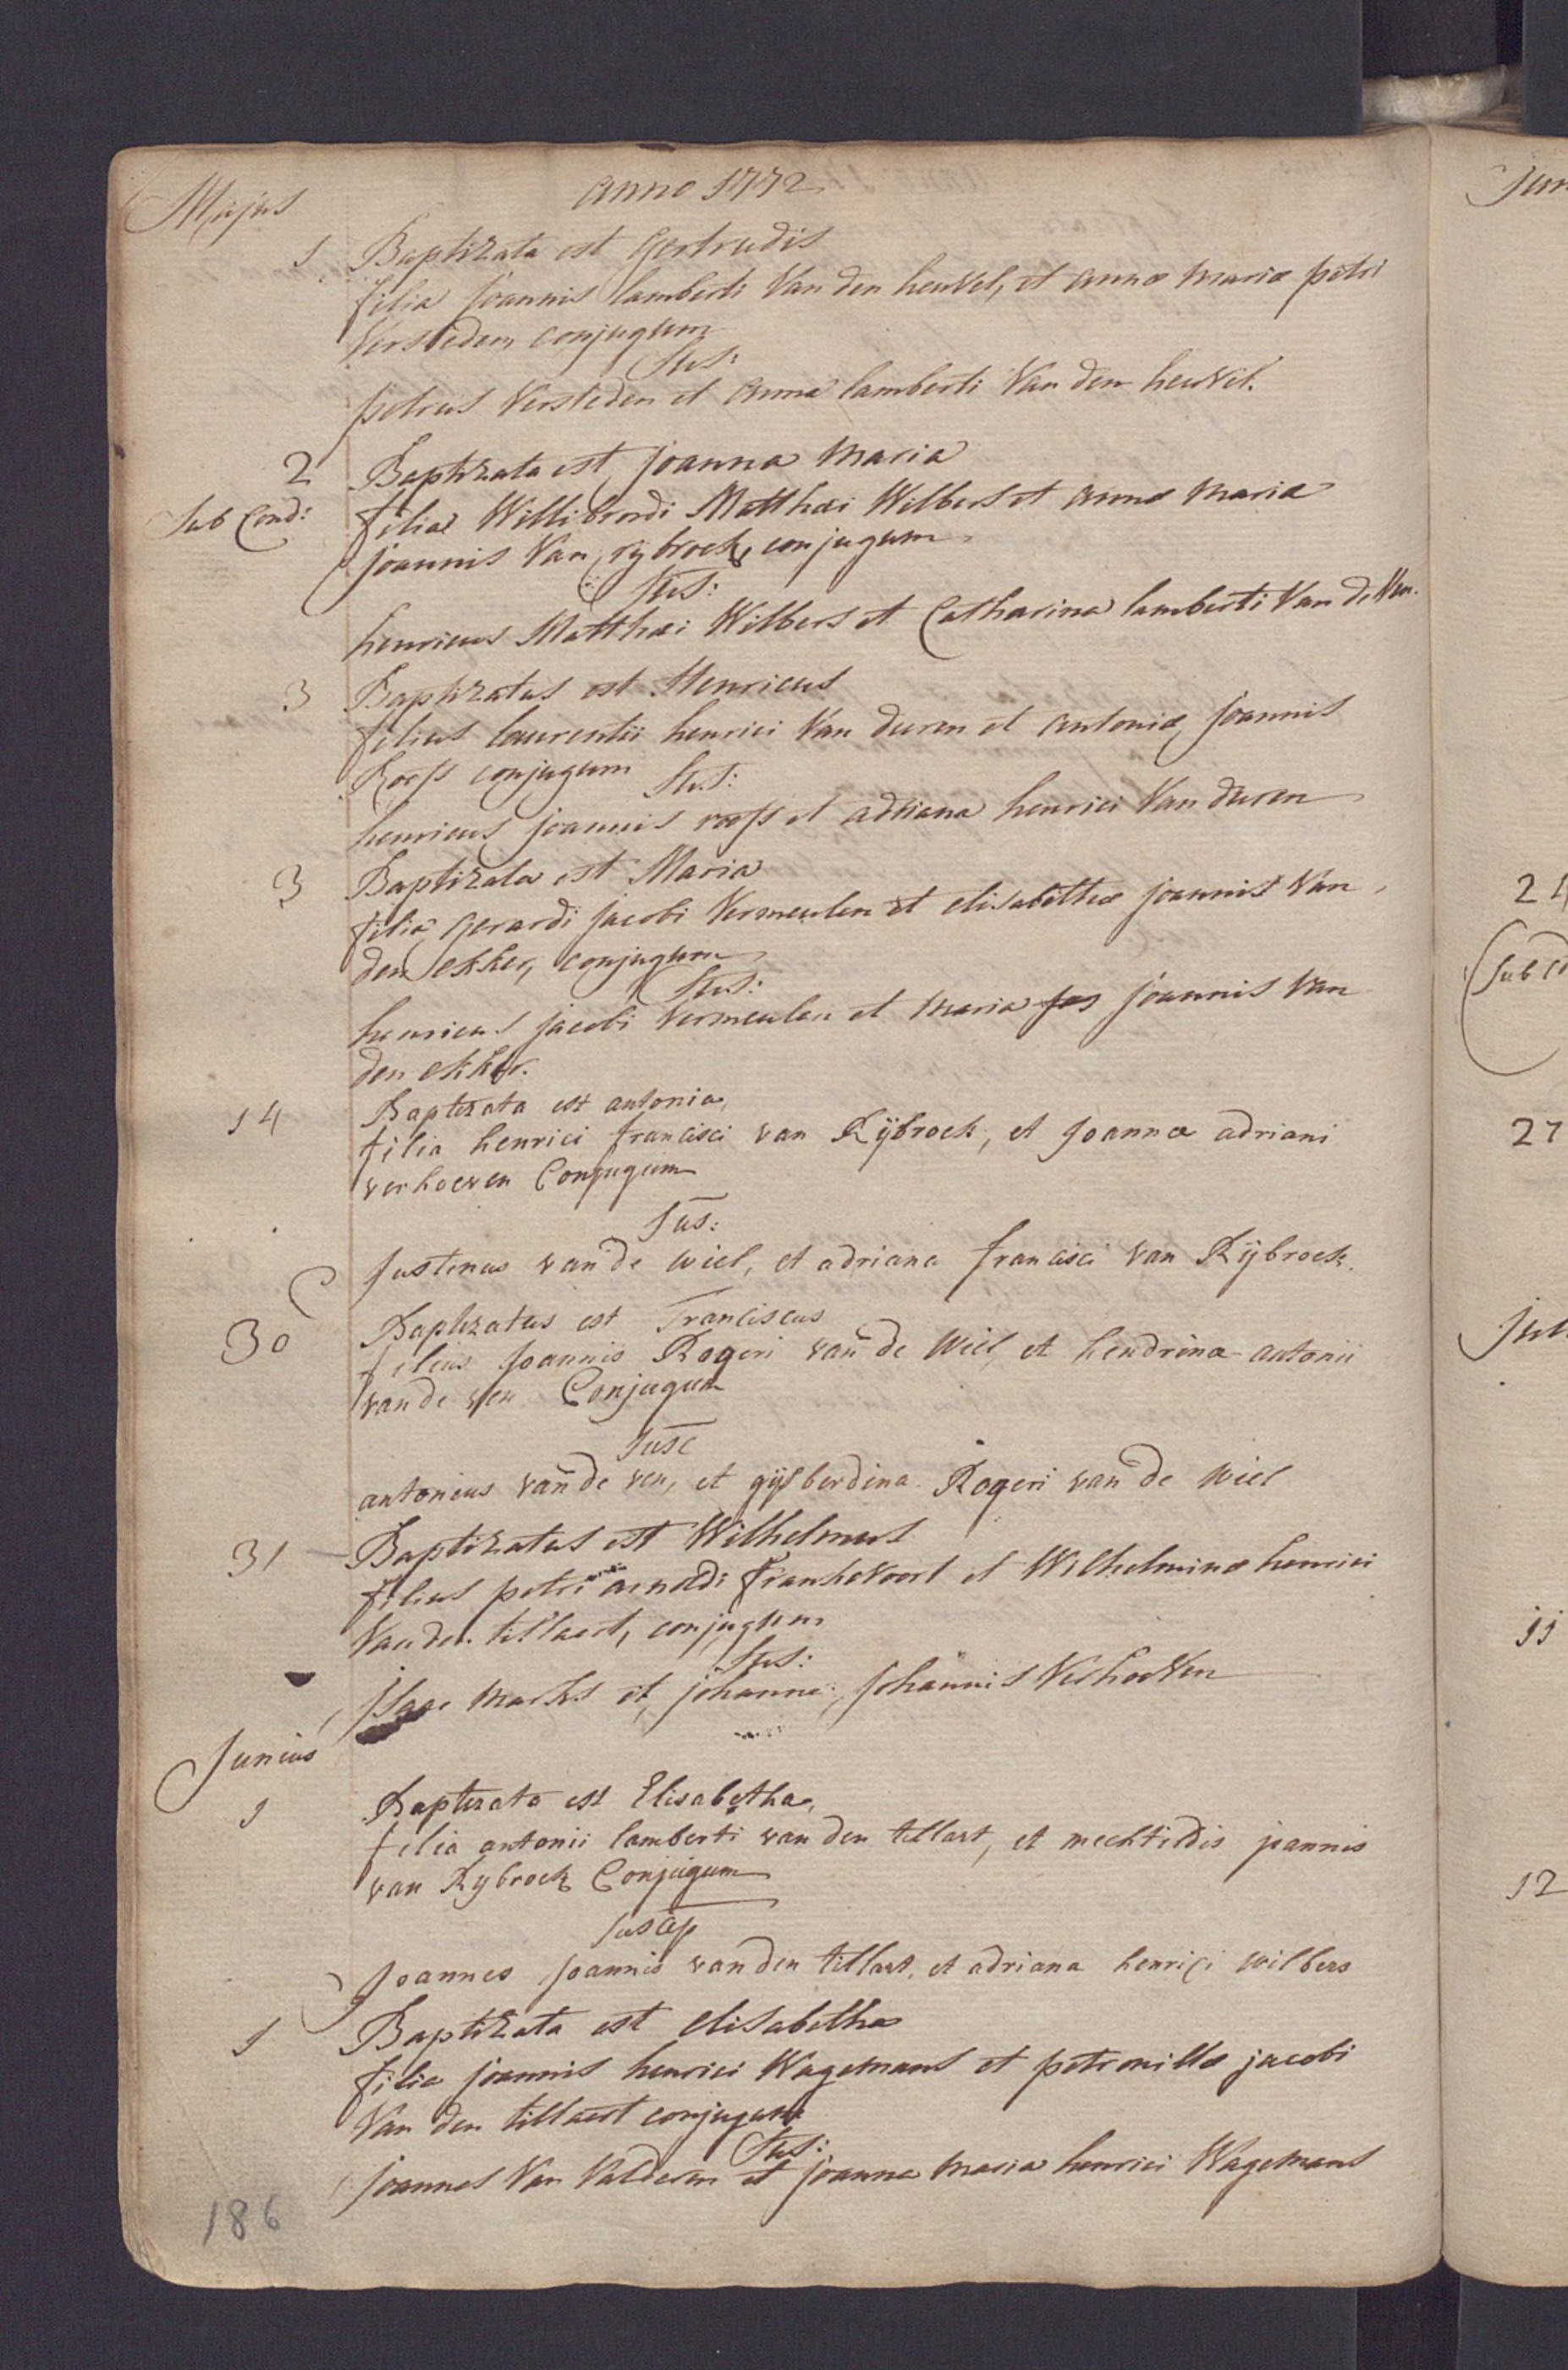 Majus
anno 1772
1 Baptizata est Gertrudis
filia Joannis lamberti Van den heuvel, et annæ mariæ petri
Versteden conjugum
Sus:
petrus Versteden et anna lamberti Van den heuvel.
2 Baptizata est Joanna Maria
Sub Cond: filia Willibrordi Matthæi Wilbers et annæ Mariæ
joannis Van rybroek, conjugum
Sus:
henricus Matthæi Wilbers et Catharina lamberti Van de Ven.
3 Baptizatus est Henricus
filius laurentii henrici Van duren et antoniæ joannis
Roefs conjugum
Sus:
henricus joannis roefs et adriana henrici Van duren
3 Baptizata est Maria
filia gerardi jacobi Vermeulen et elisabethæ joannis Van
den ekker, conjugum
Sus:
henricus jacobi Vermeulen et maria joannis Van
den ekker.
14 Baptizata est antonia,
filia henrici francisci van Rÿbroek, et Joannæ adriani
verhoeven Conjugum
Sus:
Justinus van de wiel, et adriana francisci van Rÿbroek.
30 Baptizatus est Franciscus
filius Joannis Rogeri van de Wiel et hendrinæ antonii
van de ven Conjugum
Susc
antonius van de ven, et gijsberdina Rogeri van de Wiel
31 Baptizatus est Wilhelmus
filius petri arnoldi Frankevoort et Wilhelminæ henrici
Van den tillaert, conjugum
Sus:
Isaac Marks et johanna Johannis Verhoeven
Junius
1 Baptizata est Elisabetha,
filia antonii lamberti van den tillart, et mechtildis joannis
van Rybroek Conjugum
Suscep
Joannes Joannis van den tillart, et adriana henrici wilbers
1 Baptizata est elisabetha
filia joannis henrici Wagemans et petronillæ jacobi
Van den tillaert conjugum
Sus:
joannes Van Valderen et joanna maria henrici Wagemans
186
Jun
24
Sub
27
Jul
11
12